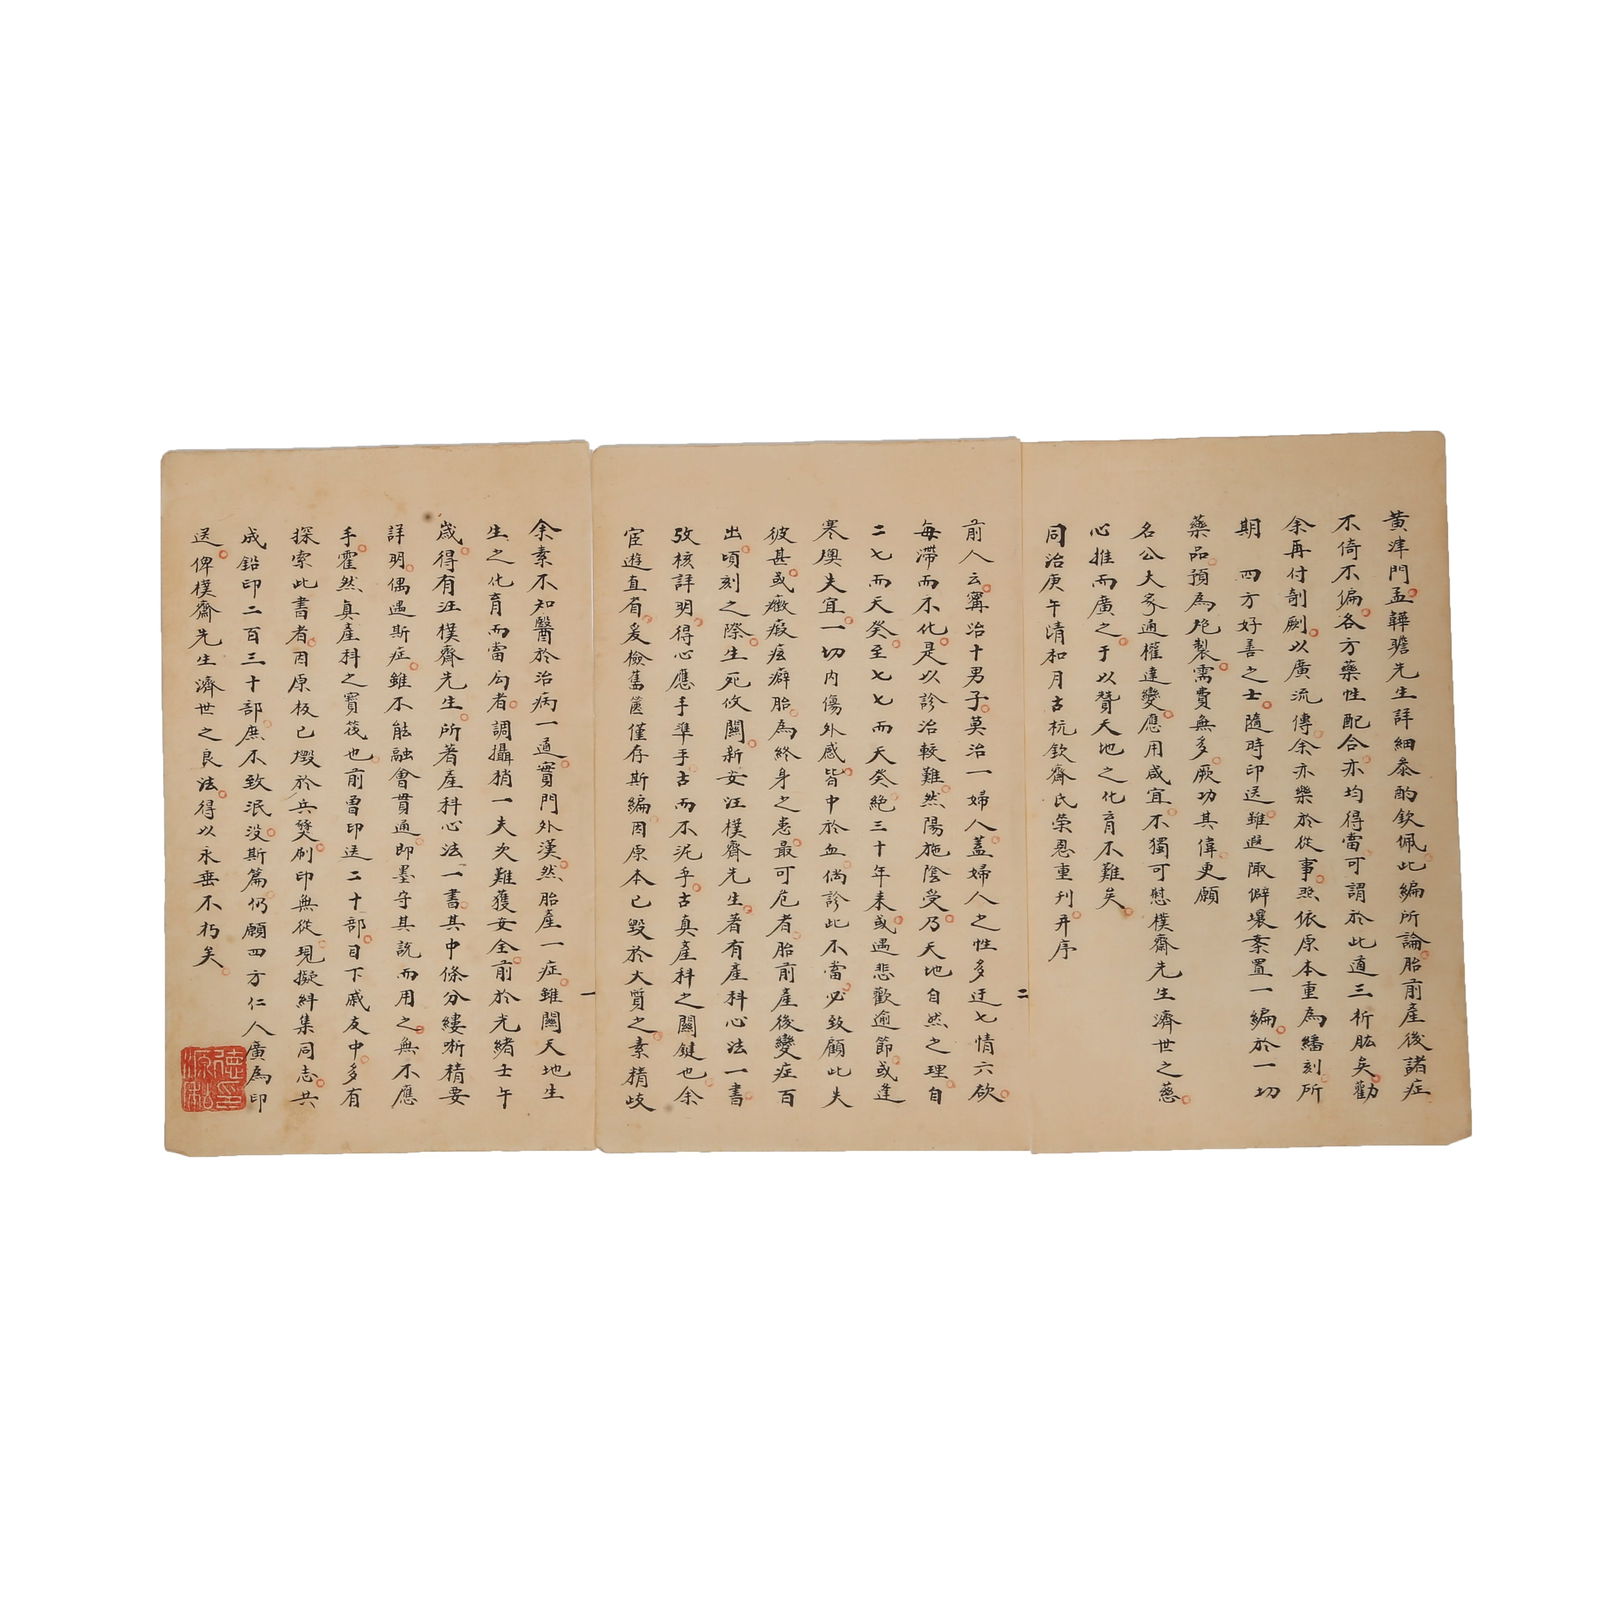 黃津門孟韡瞻先生詳細叅酌欽佩此編所論胎前產後諸症
不倚不偏各方藥性配合亦均得當可謂於此道三折肱矣勸
余再付剞劂以廣流傳余亦樂於從事照依原本重為繙刻所
期 四方好善之士隨時印送雖遐陬僻壤案置一編於一切
藥品預為炮製需費無多厥功其偉更願
名公大家通權達變應用咸宜不獨可慰樸齋先生濟世之慈
心推而廣之于以贊天地之化育不難矣
同治庚午清和月古杭欽齋氏榮恩重刊并序
前人云甯治十男子莫治一婦人蓋婦人之性多迂七情六欲
每滯而不化是以診治較難然陽施陰受乃天地自然之理自
二七而天癸至七七而天癸絕三十年来或遇悲歡逾節或逢
寒燠失宜一切内傷外感皆中於血倘診此不當必致顧此失
彼甚或癥瘕痃癖胎為終身之患最可危者胎前產後變症百
出頃刻之際生死攸關新安汪樸齋先生著有產科心法一書
攷核詳明得心應手準乎古而不泥乎古真產科之關鍵也余
宦遊直省爰檢舊篋僅存斯編因原本已毀於大質之素精岐
余素不知醫於治病一道實門外漢然胎產一症雖關天地生
生之化育而當勾者調攝稍一失次難獲安全前於光緒壬午
歲得有汪樸齋先生所著產科心法一書其中條分縷晰精要
詳明偶遇斯症雖不能融會貫通即墨守其說而用之無不應
手霍然真產科之寶筏也前曾印送二十部目下戚友中多有
探索此書者因原板已燬於兵燹刷印無從現擬糾集同志共
成鉛印二百三十部庶不致泯没斯篇仍願四方仁人廣為印
送俾樸齋先生濟世之良法得以永垂不朽矣